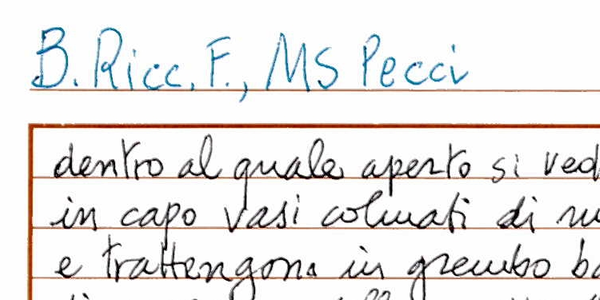 B. Ricc. F., MS Pecci
dentro al quale aperto si ved
in capo vasi colmati di
e trattengono in grembo ba